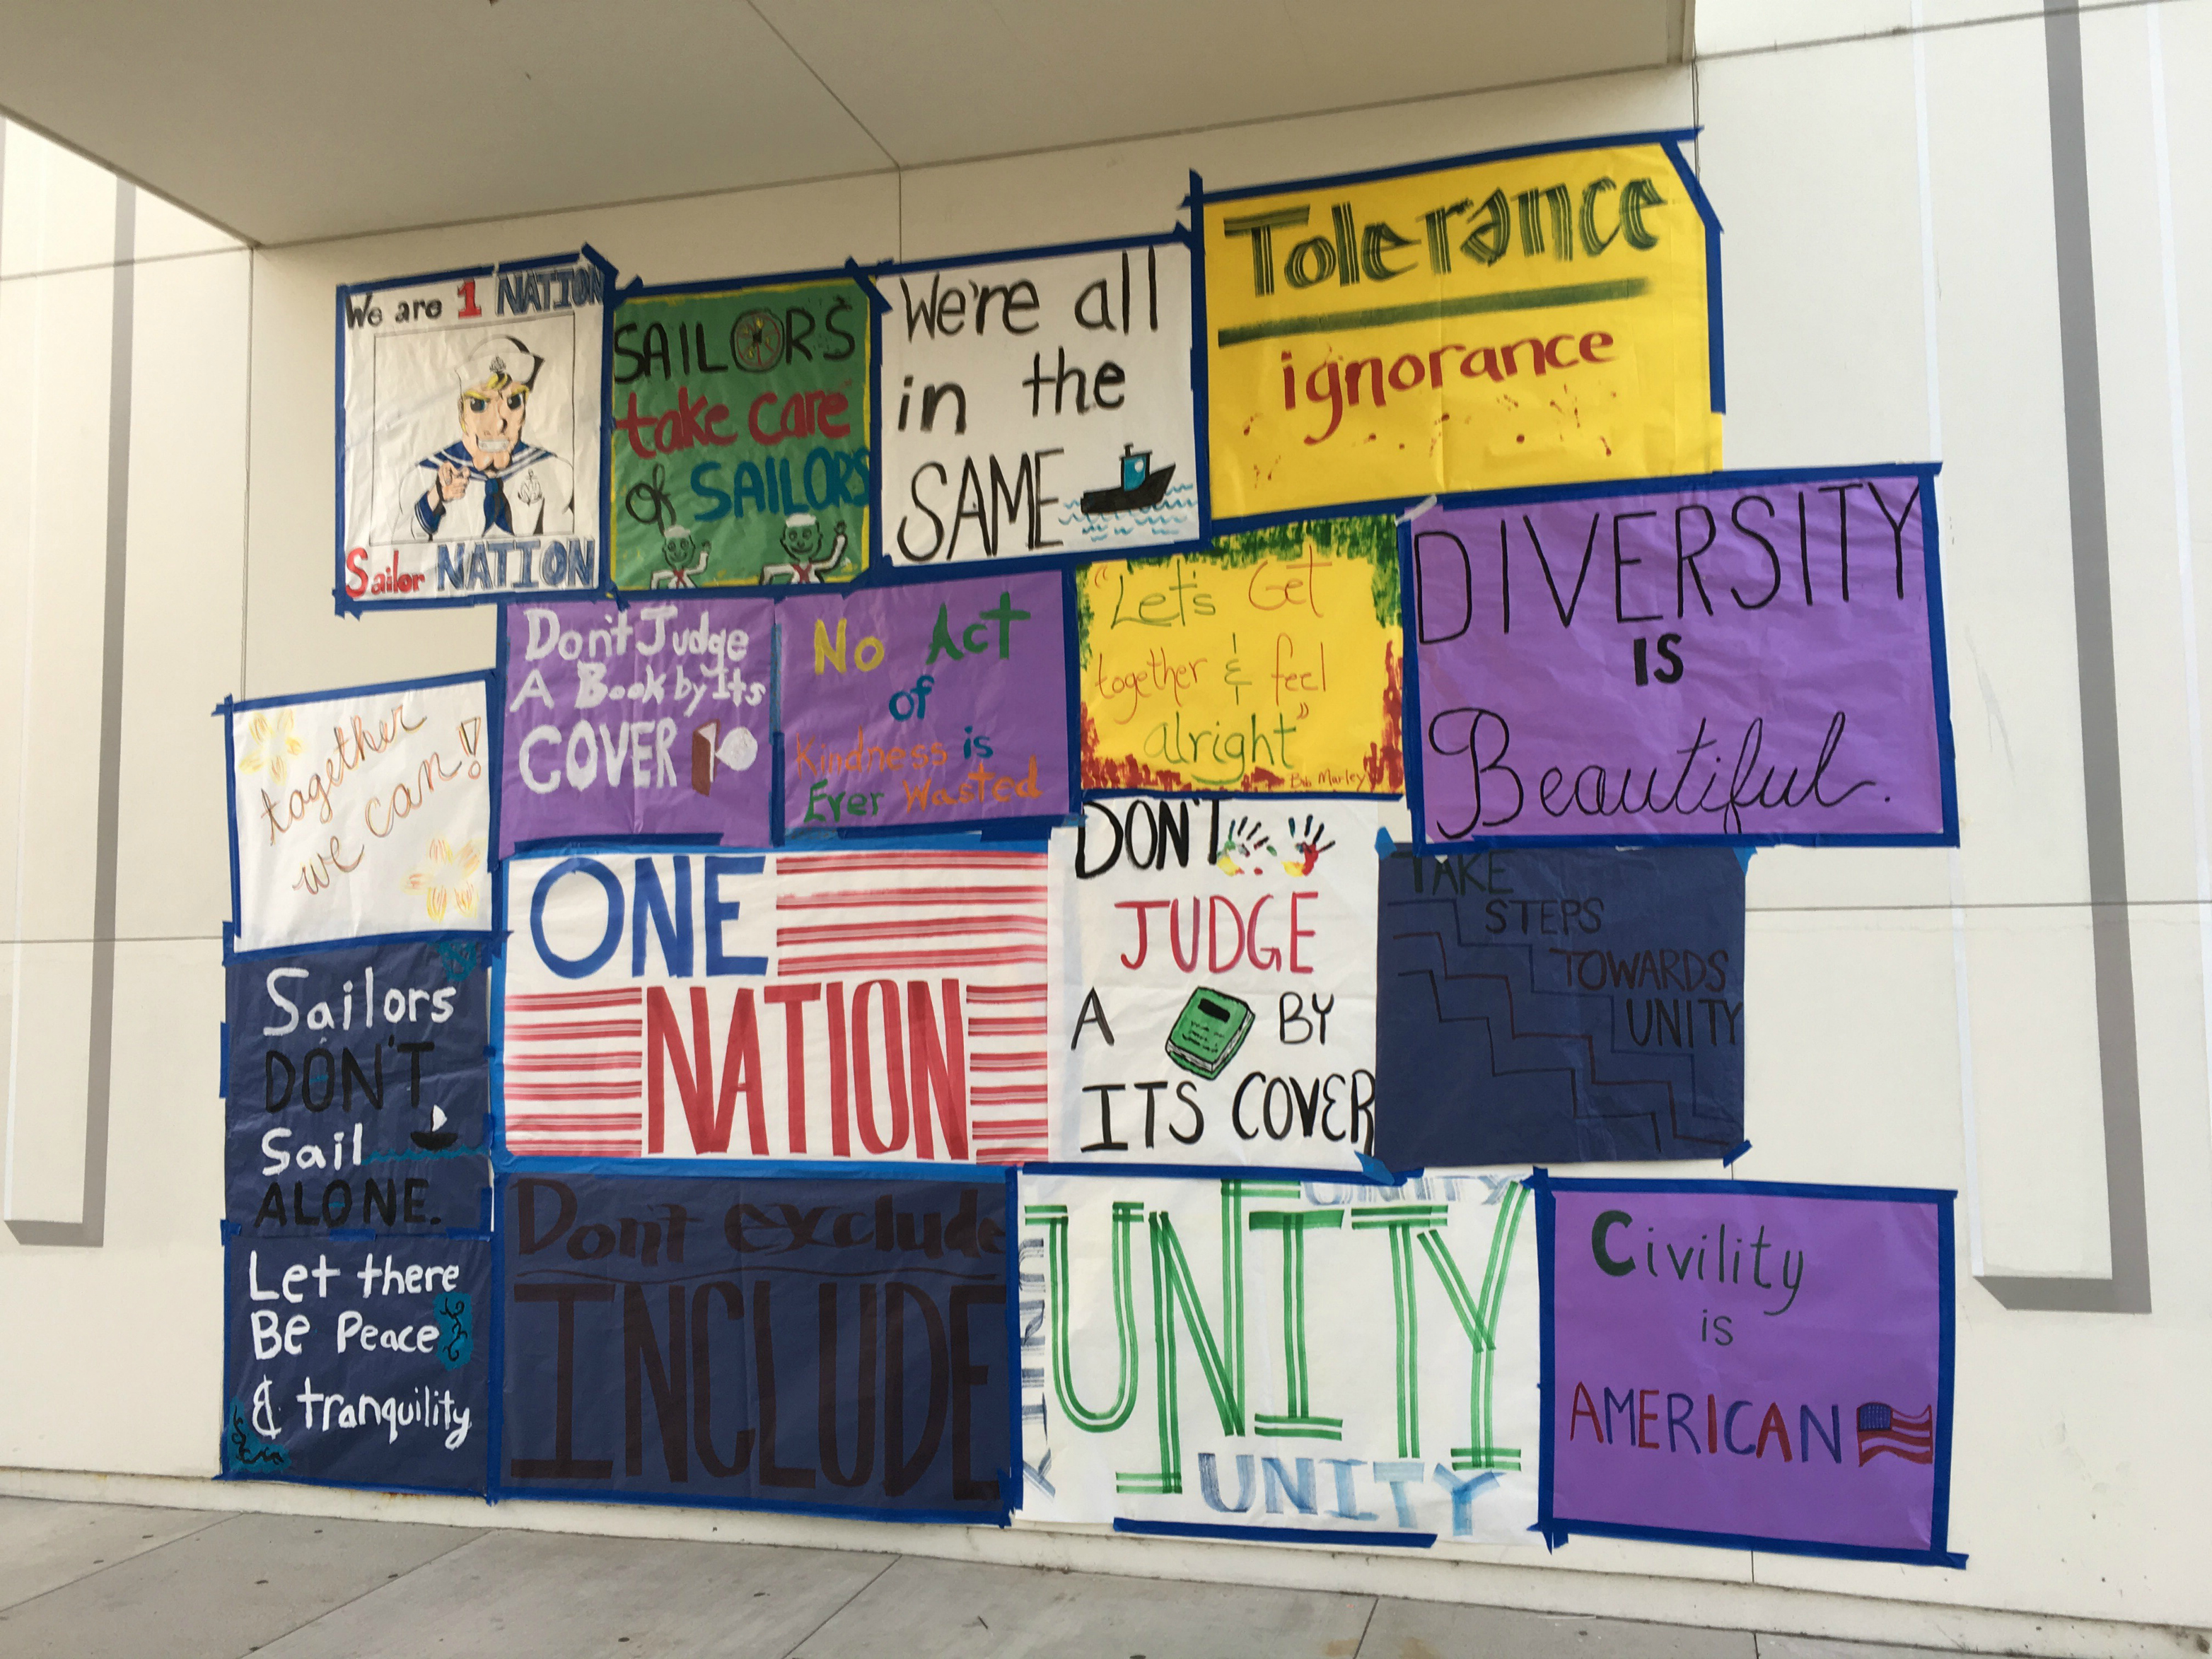 We are 1 NATION
Sailor NATION
SAILORS
take care
of SAILORS
We're all
in the
SAME
Tolerance
ignorance
Don't Judge
A Book by Its
COVER
No Act
of
Kindness is
Ever Wasted
"Let's Get
together & feel
alright"
Bob Marley
DIVERSITY
IS
Beautiful.
together
we can!
ONE
NATION
DON'T
JUDGE
A BY
ITS COVER
TAKE
STEPS
TOWARDS
UNITY
Sailors
DON'T
Sail
ALONE.
Let there
Be Peace
& tranquility
Don't exclude
INCLUDE
UNITY
UNITY
UNITY
UNITY
Civility
is
AMERICAN